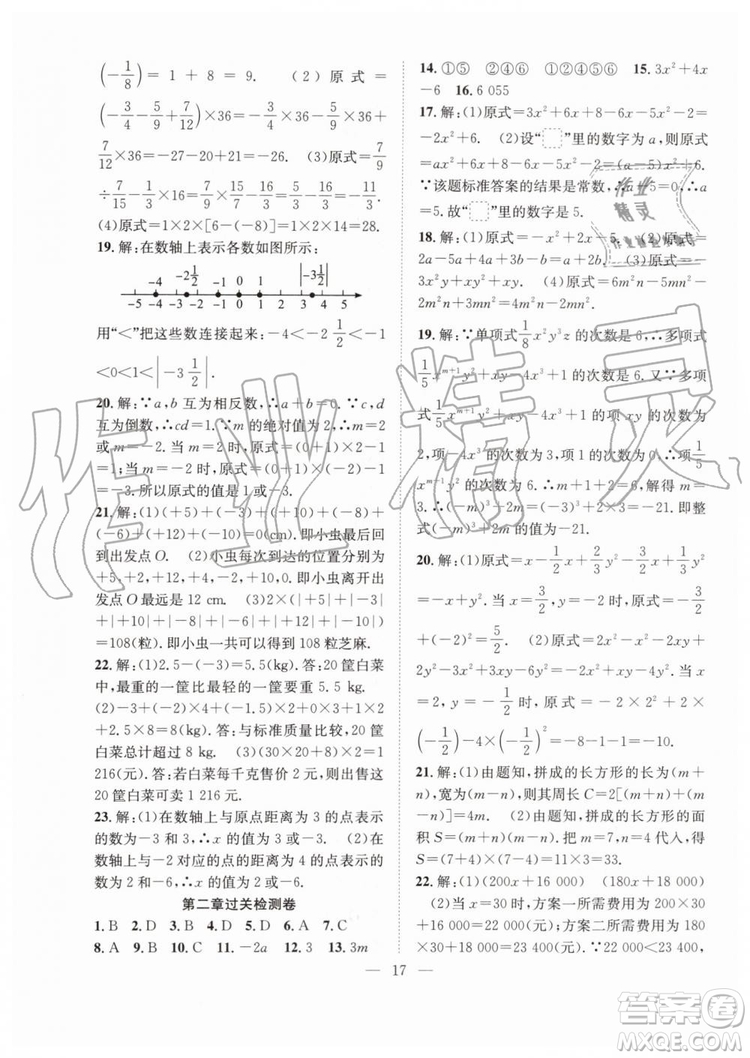 (-1/8)=1+8=9. (2)原式=
(-3/4-5/9+7/12)×36=-3/4×36-5/9×36+
7/12×36=-27-20+21=-26. (3)原式=7/9
÷7/15-11/3=7/9×15/7-11/3=5/3-11/3=-2.
(4)原式=1×2×[6-(-8)]=1×2×14=28.
19.解:在数轴上表示各数如图所示:
-4 -2 1/2 -1 0 1 |-3 1/2|
-5 -4 -3 -2 -1 0 1 2 3 4 5
用"<"把这些数连接起来:-4<-2 1/2<-1
<0<1<|-3 1/2|.
20.解:∵a,b互为相反数,∴a+b=0.∵c,d
互为倒数,∴cd=1.∵m的绝对值为2,∴m=2
或m=-2.当m=2时,原式=(0+1)×2-1
=1;当m=-2时,原式=(0+1)×(-2)-1
=-3.所以原式的值是1或-3.
21.解:(1)(+5)+(-3)+(+10)+(-8)+
(-6)+(+12)+(-10)=0(cm).即小虫最后回
到出发点O. (2)小虫每次到达的位置分别为
+5,+2,+12,+4,-2,+10,0.即小虫离开出
发点O最远是12 cm. (3)2×(|+5|+|-3|
+|+10|+|-8|+|-6|+|+12|+|-10|)
=108(粒).即小虫一共可以得108粒芝麻.
22.解:(1)2.5-(-3)=5.5(kg).答:20筐白菜
中,最重的一筐比最轻的一筐要重5.5 kg.
(2)-3×1+(-2)×4+(-1.5)×2+0×3+1×2
+2.5×8=8(kg).答:与标准质量比较,20筐
白菜总计超过8 kg. (3)(20×30+8)×2=1
216(元).答:若白菜每千克售价为2元,则出售
20筐白菜可卖1 216元.
23.解:(1)在数轴上与原点距离为3的点表示
的数为-3和3,∴x的值为-3或3. (2)在
数轴上与-2对应的点的距离为4的点表示的
数为-6和2,∴x的值为2或-6.
第二章过关检测卷
1.B 2.D 3.B 4.D 5.D 6.A 7.C
8.A 9.A 10.C 11.-2a 12.3 13.3m
14.①⑤ ②④⑥ ①②④⑤⑥ 15.3x²+4x
-6 16.6 055
17.解:(1)原式=3x²+6x+8-6x-5x²-2=
-2x²+6. (2)设"□"里的数字为a,则原式=
ax²+6x+8-6x-5x²-2=(a-5)x²+6.
∵该题标准答案的结果是常数,∴a-5=0,∴a
=5.故"□"里的数字是5.
18.解:(1)原式=-x²-6x-5. (2)原式=
5a-2a+5b-4a+3b=-a+8b. (3)原式=
2a-5b+4a-5a+3b=a-2b. (4)原式=6m²n
+2m²n-2mn²-3mn²=8m²n-5mn².
19.解:∵单项式1/8x²y³z的次数是6,∴多项式
1/5x^(m+1)y²+xy²-4x³+1的次数是6.又∵多项
式1/5x^(m+1)y²+xy²-4x³+1中,xy²的次数为
2,项-4x³的次数为3,项1的次数为0,∴项
1/5x^(m+1)y²的次数为6.∴m+1+2=6.解得m=
3.∴(-m)³+2m=(-3)³+2×3=-21.即整
式(-m)³+2m的值为-21.
20.解:(1)原式=1/2x-2x+2/3y²-3/2x+1/3y²
=-3x+y².当x=3/2,y=-2时,原式=-3×3/2
+(-2)²=-1/2. (2)原式=2x²y+2xy-
2y=-2,y=-1/2时,原式=-2×(-2)×
(-1/2)-4×(-2)×(-1/2)²
21.解:(1)由题知,拼成的长方形的长为(m+
n),宽为(m-n),则周长C=2[(m+n)+(m-
n)]=4m. (2)由题知,拼成的长方形的面
积S=(m+n)(m-n).把m=7,n=4代入,得
S=(7+4)×(7-4)=11×3=33.
22.解:(1)(200x+16 000) (180x+18 000)
(2)当x=30时,方案一所需费用为200×30+
16 000=22 000(元);方案二所需费用为180×
30+18 000=23 400(元).∵22 000<23 400,
— 17 —
作业精灵
答案圈
MXQE.COM